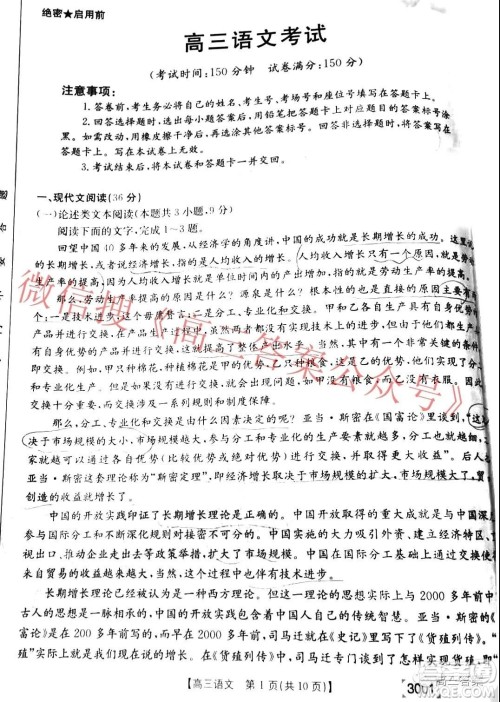 绝密★启用前
高三语文考试
(考试时间:150分钟 试卷满分:150分)
注意事项:
1.答卷前,考生务必将自己的姓名、考生号、考场号和座位号填写在答题卡上。
2.回答选择题时,选出每小题答案后,用铅笔把答题卡上对应题目的答案标号涂
黑。如需改动,用橡皮擦干净后,再选涂其他答案标号。回答非选择题时,将答案
写在答题卡上。写在本试卷上无效。
3.考试结束后,将本试卷和答题卡一并交回。
一、现代文阅读(36分)
(一)论述类文本阅读(本题共3小题,9分)
阅读下面的文字,完成1~3题。
回望中国40多年来的发展,从经济学的角度讲,中国的成功就是长期增长的成功。这里
的长期增长,或者说经济增长,指的是人均收入的增长。人均收入增长只有一个原因,就是劳动
生产率的提高,因为人均收入增长就是单位时间内的产出增加,指的就是劳动生产率的提高。
那么,劳动生产率提高的原因是什么?源泉是什么?根本的也是直接的原因主要有两
个:分工、专业化和交换。甲和
产品并进行交换,在生产
势的产品并进行交换,
即交换。如甲只种棉花,种植棉花是甲的优势,乙只种粮食,
已。但是如果不能进行交换,就会出现问题,
交换十分重要,而交换涉及一系列规则和制度安排。
那么,分工、专业化和交换是由什么因素决定的呢?亚当·斯密在《国富论》里说,这
决于市场规模的大小,市场规模越大,参与分工和交换的
发挥各自优势(比较优势或绝对优势)并交换,并取得更大收益”。后人
就把亚当·斯密的这套理论称为“斯密定理”,即经济增长取决于市场规模的扩大,市场规模的扩大
创造了经济增长。
中国的开放实践印证了长期增长理论是正确的。中国改革开放取得的重大成就,就是
参与国际分工和不断深化规则对接密不可分的。中国大力吸引外资、建立经济特区、
视出口、推动企业走出去等,扩大了市场规模。中国在国际分工基础上通过交
来自贸易的收益越来越大。当然,这个过程中也伴有制度演进。
长期增长理论已经被认为是一种西方理论。但这一理论的思想实际上与2000多年前中
古人的思想是一脉相承的,中国的开放实践蕴含着中国人自己的传统智慧。亚当·斯密的《
富论》是在200多年前写的,而早在2000多年前,司马迁就在《史记》里写下了《货殖列传》
实际上,这两部作品的思想是一致的。在《货殖列传》中,司马迁专门谈到了几
【高三语文 第1页(共10页)】
3001
高三答案
微信搜《高三答案公众号》